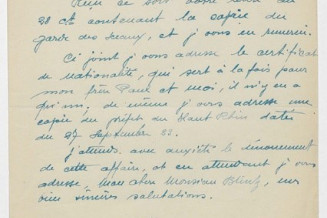 Reçu ce soir votre lettre du
28 ct contenant la copie du
garde des sceaux, et je vous en remercie.
Ci joint je vous adresse le certificat
de nationalité, qui sert à la fois pour
mon frère Paul et moi, il n'y en a
qu'un, de même je vous adresse une
copie du préfet du Haut Rhin datée
du 27 Septembre
j'attends avec anxiété le dénouement
de cette affaire, et en attendant je vous
adresse, Mon cher Monsieur mes
sincères salutations.